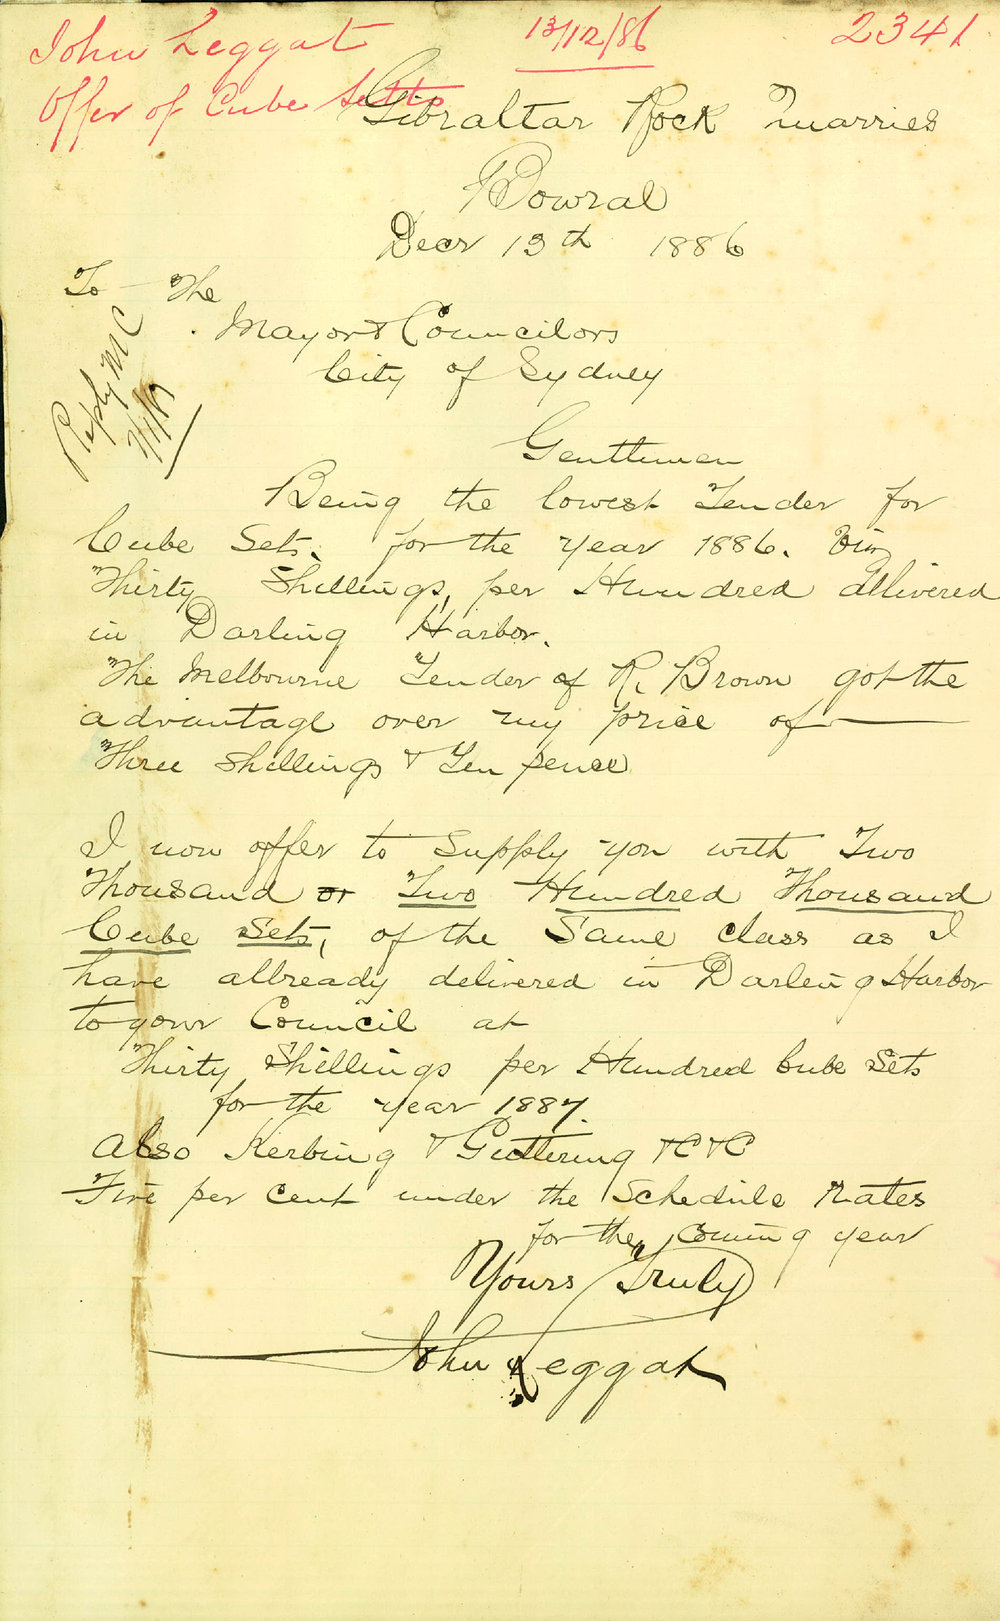 John Leggat 13/12/86 2341
Offer of Cube Setts
Gibraltar Rock Quarries
Bowral
Decr 13th 1886
To The
Mayor & Councilors
City of Sydney
Reply MC
7/1/87
Gentlemen
Being the lowest Tender for
Cube Sets. for the year 1886. Viz
Thirty Shillings, per Hundred dilivered
in Darling Harbor.
The Melbourne Tender of R. Brown got the
advantage over my price of
Three shillings & Ten pence
I now offer to Supply you with Two
Thousand or Two Hundred Thousand
Cube Sets, of the Same class as I
have allready delivered in Darling Harbor
to your Council at
Thirty Shillings per Hundred Cube Sets
for the year 1887.
Also Kerbing & Guttering &C &C
Five per cent under the Schedule Rates
for the coming year
Yours Truly
John Leggat